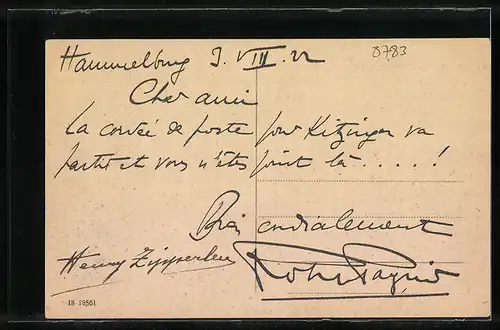 Hammelburg 3.VIII.22
8783
Cher ami
La corvée de poste pour Kitzingen va
partir et vous n'êtes point là.....!
Bien cordialement
Henry Zipperlen
18 18561